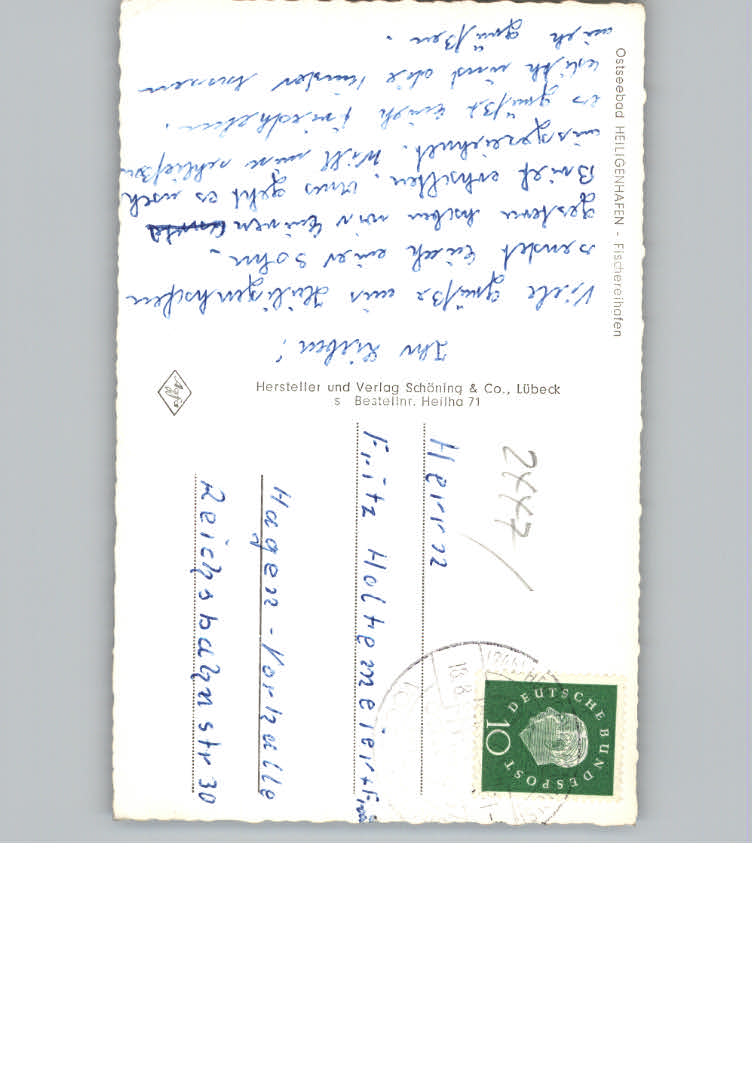 Ostseebad HEILIGENHAFEN - Fischereihafen
Ihr Lieben!
Viele Grüße aus Heiligenhafen
sendet Euch euer Sohn.
gestern haben wir Euren
Brief erhalten. Uns geht es noch
ausgezeichnet. Will nun schließen
es grüßt Euch Friedhelm.
und die Kinder lassen
auch grüßen.
Agfa
Hersteller und Verlag Schöning & Co., Lübeck
s Bestellnr. Heilha 71
Herrn
Fritz Holtemeier + Frau
Hagen-Vorhalle
Reichsbahnstr 30
DEUTSCHE BUNDESPOST
10